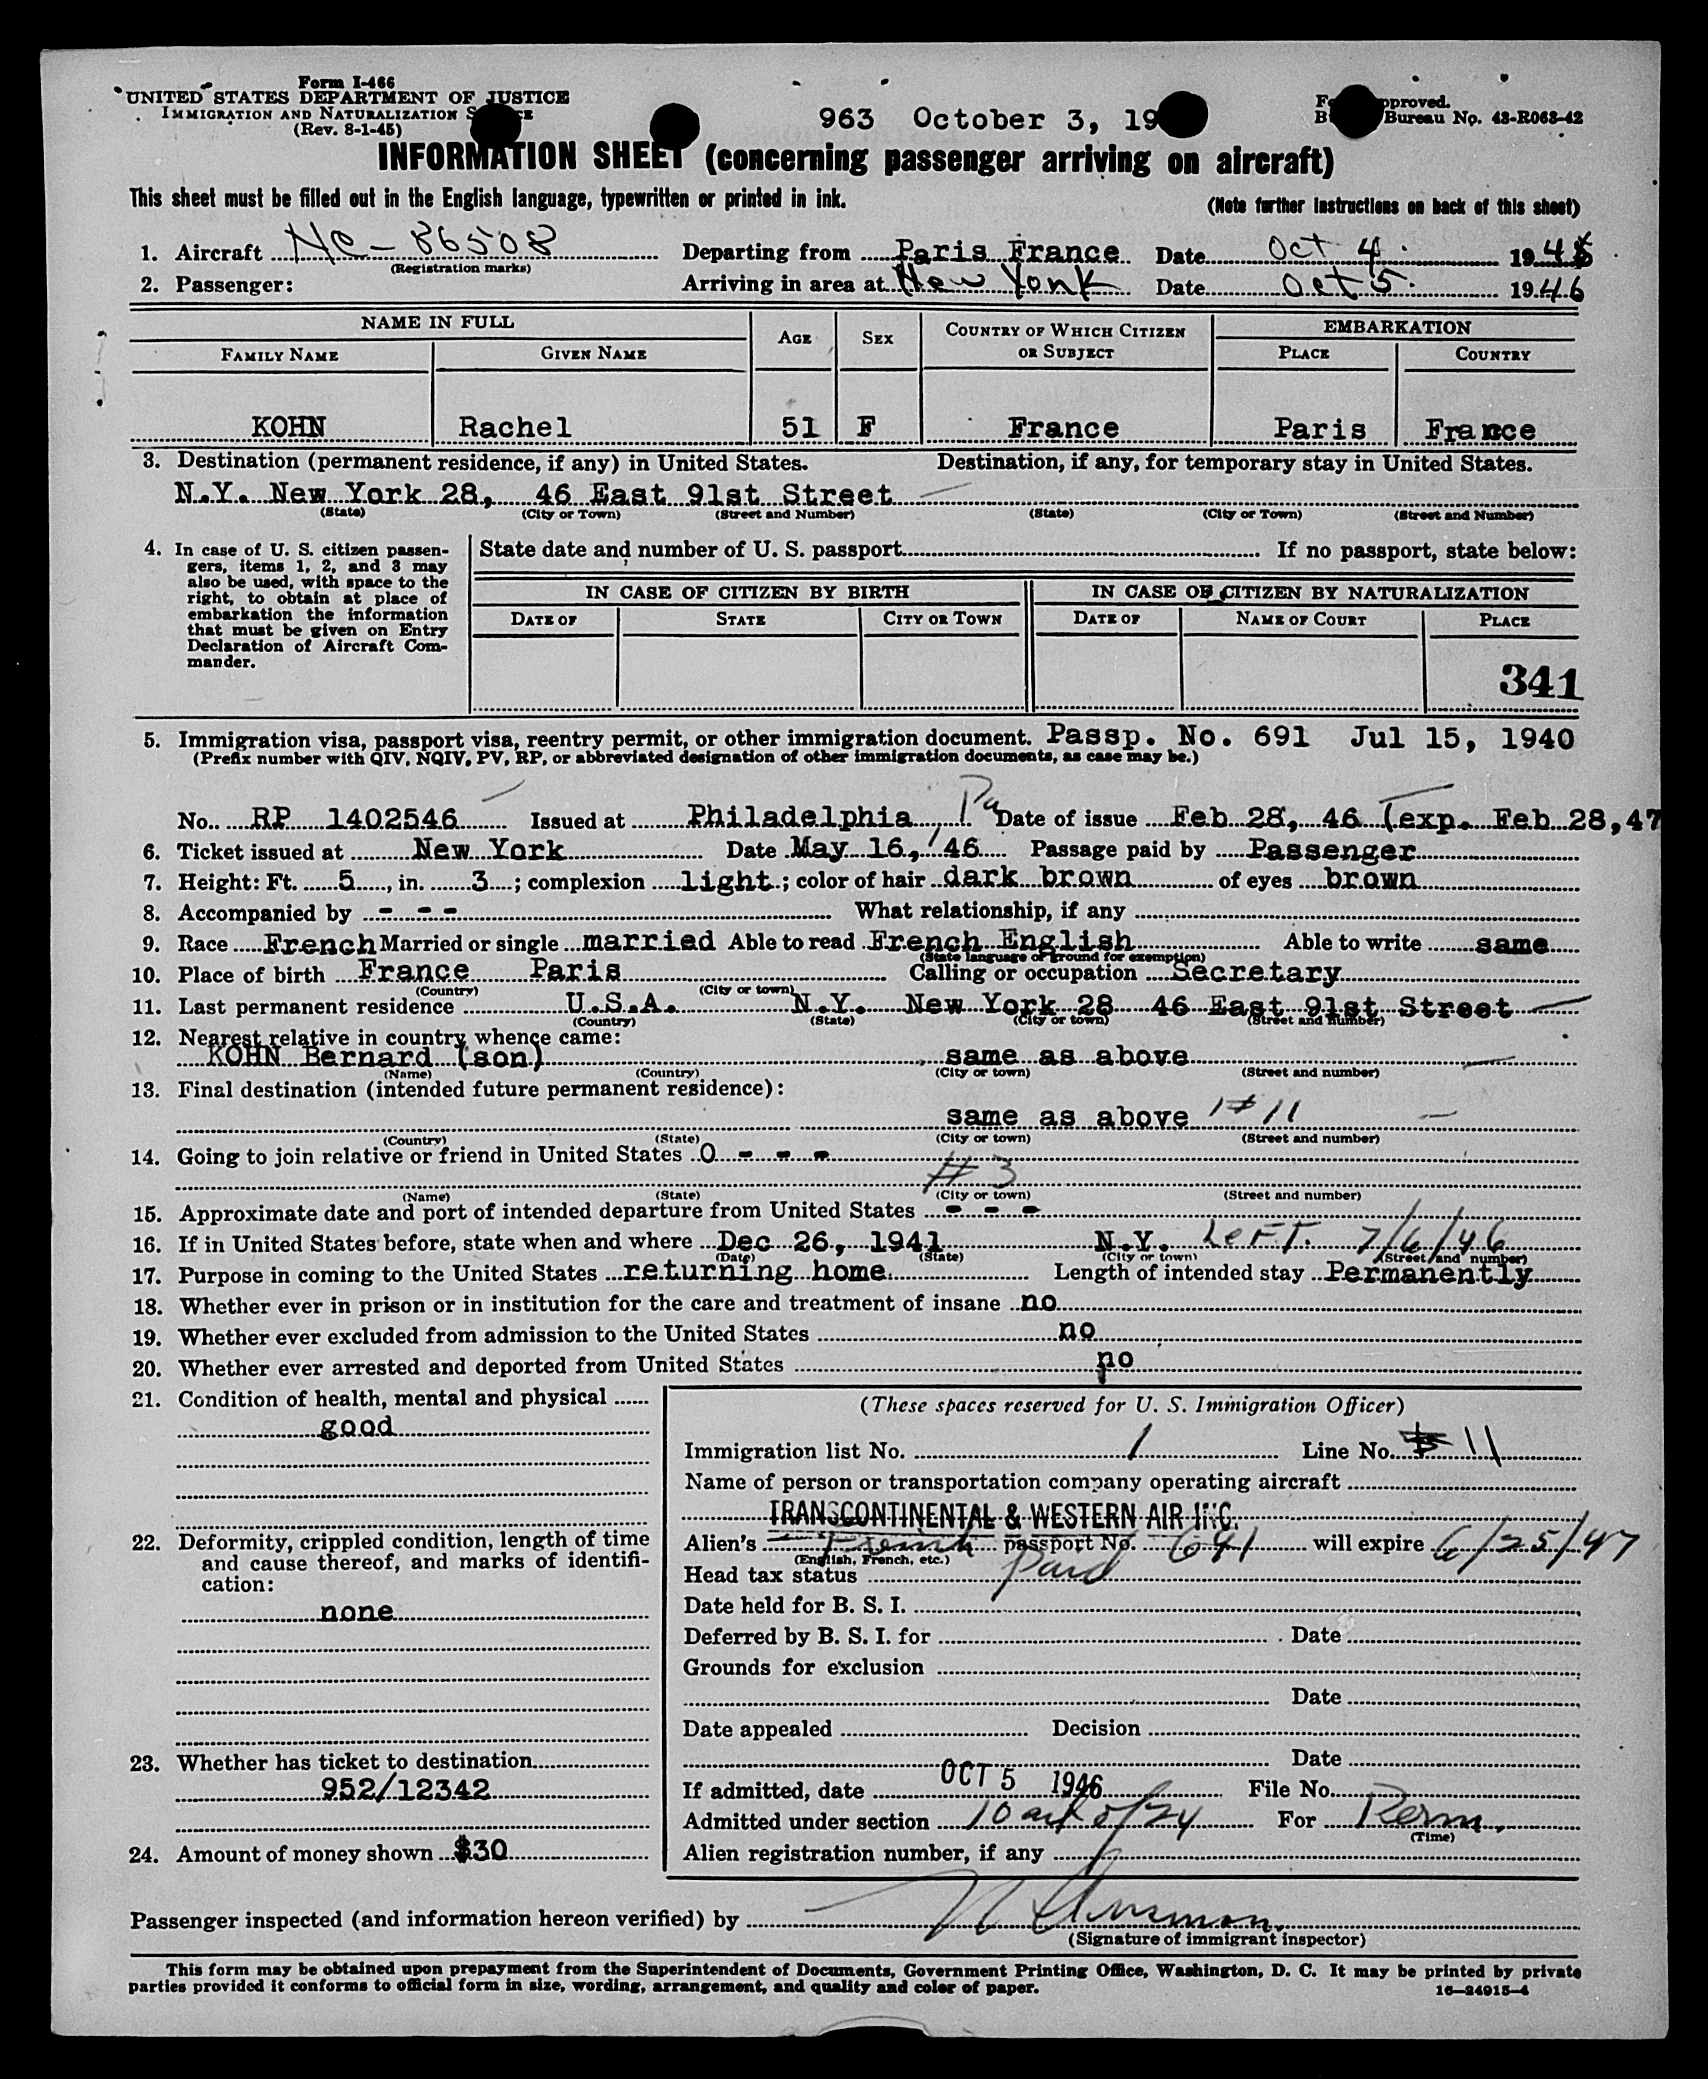 Form I-466
UNITED STATES DEPARTMENT OF JUSTICE
IMMIGRATION AND NATURALIZATION
(Rev. 8-1-45)
963 October 3, 19
Approved.
Bureau No. 43-R063-42
INFORMATION SHEET (concerning passenger arriving on aircraft)
This sheet must be filled out in the English language, typewritten or printed in ink.
(Note further instructions on back of this sheet)
1. Aircraft NC-86508 Departing from Paris France Date Oct 4 1946
(Registration marks)
2. Passenger: Arriving in area at New York Date Oct 5. 1946
NAME IN FULL AGE SEX COUNTRY OF WHICH CITIZEN OR SUBJECT EMBARKATION
FAMILY NAME GIVEN NAME PLACE COUNTRY
KOHN Rachel 51 F France Paris France
3. Destination (permanent residence, if any) in United States. Destination, if any, for temporary stay in United States.
N.Y. New York 28, 46 East 91st Street
(State) (City or Town) (Street and Number) (State) (City or Town) (Street and Number)
4. In case of U. S. citizen passen-
gers, items 1, 2, and 3 may
also be used, with space to the
right, to obtain at place of
embarkation the information
that must be given on Entry
Declaration of Aircraft Com-
mander.
State date and number of U. S. passport If no passport, state below:
IN CASE OF CITIZEN BY BIRTH IN CASE OF CITIZEN BY NATURALIZATION
DATE OF STATE CITY OR TOWN DATE OF NAME OF COURT PLACE
341
5. Immigration visa, passport visa, reentry permit, or other immigration document. Passp. No. 691 Jul 15, 1940
(Prefix number with QIV, NQIV, PV, RP, or abbreviated designation of other immigration documents, as case may be.)
No. RP 1402546 Issued at Philadelphia Pa Date of issue Feb 28, 46 (exp. Feb 28,47
6. Ticket issued at New York Date May 16, '46 Passage paid by Passenger
7. Height: Ft. 5, in. 3; complexion light; color of hair dark brown of eyes brown
8. Accompanied by - - - What relationship, if any
9. Race French Married or single married Able to read French English Able to write same
(State language or ground for exemption)
10. Place of birth France Paris Calling or occupation Secretary
(Country) (City or town)
11. Last permanent residence U.S.A. N.Y. New York 28 46 East 91st Street
(Country) (State) (City or town) (Street and number)
12. Nearest relative in country whence came:
KOHN Bernard (son) same as above
(Name) (Country) (City or town) (Street and number)
13. Final destination (intended future permanent residence):
same as above #11
(Country) (State) (City or town) (Street and number)
14. Going to join relative or friend in United States O - - -
#3
(Name) (State) (City or town) (Street and number)
15. Approximate date and port of intended departure from United States - - -
16. If in United States before, state when and where Dec 26, 1941 N.Y. Left 7/6/46
(Date) (State) (City or town) (Street and number)
17. Purpose in coming to the United States returning home. Length of intended stay Permanently
18. Whether ever in prison or in institution for the care and treatment of insane no
19. Whether ever excluded from admission to the United States no
20. Whether ever arrested and deported from United States no
21. Condition of health, mental and physical
good
22. Deformity, crippled condition, length of time
and cause thereof, and marks of identifi-
cation:
none
23. Whether has ticket to destination
952/12342
24. Amount of money shown $30
(These spaces reserved for U. S. Immigration Officer)
Immigration list No. 1 Line No. 11
Name of person or transportation company operating aircraft
TRANSCONTINENTAL & WESTERN AIR INC.
Alien's French passport No. 691 will expire 6/25/47
(English, French, etc.)
Head tax status Paid
Date held for B. S. I.
Deferred by B. S. I. for Date
Grounds for exclusion
Date
Date appealed Decision
Date
If admitted, date OCT 5 1946 File No.
Admitted under section 10 act of 24 For Perm.
(Time)
Alien registration number, if any
Passenger inspected (and information hereon verified) by
(Signature of immigrant inspector)
This form may be obtained upon prepayment from the Superintendent of Documents, Government Printing Office, Washington, D. C. It may be printed by private
parties provided it conforms to official form in size, wording, arrangement, and quality and color of paper.
16—24915-4